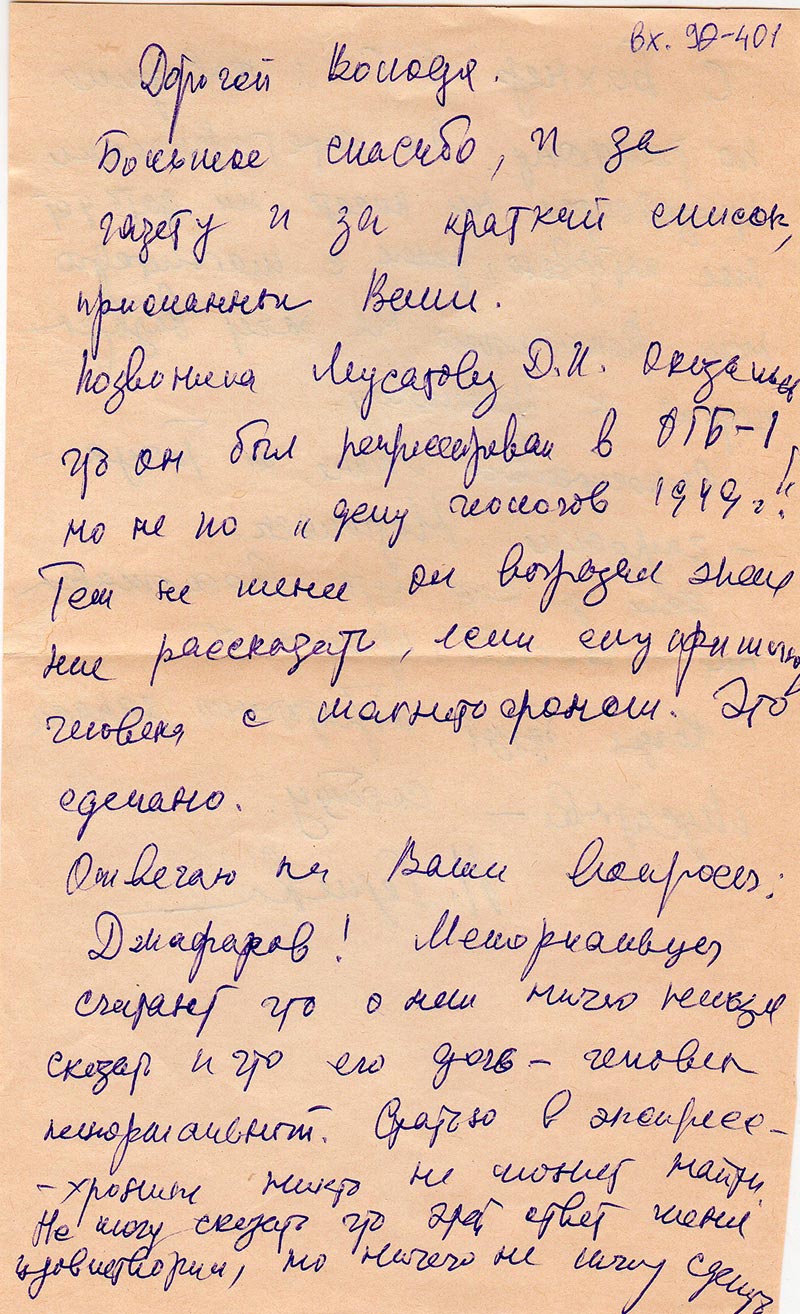 Вх. 92-401
Дорогой Володя.
Большое спасибо, и за
газету и за краткий список,
присланный Вами.
Позвонила Мусатову Д.И. Оказалось
что он был репрессирован в ОТБ-1,
но не по „делу геологов 1949 г.“!
Тем не менее он
рассказать, если ему пришлю
человека с магнитофоном. Это
сделано.
Отвечаю на Ваши вопросы:
Джафаров! Мемориальцы
считают что о нем ничего нельзя
сказать и что его дочь – человек
ненормальный. Статью в экспресс-
-хронике никто не может найти.
Не могу сказать что этот ответ меня
удовлетворил, но ничего не могу сделать